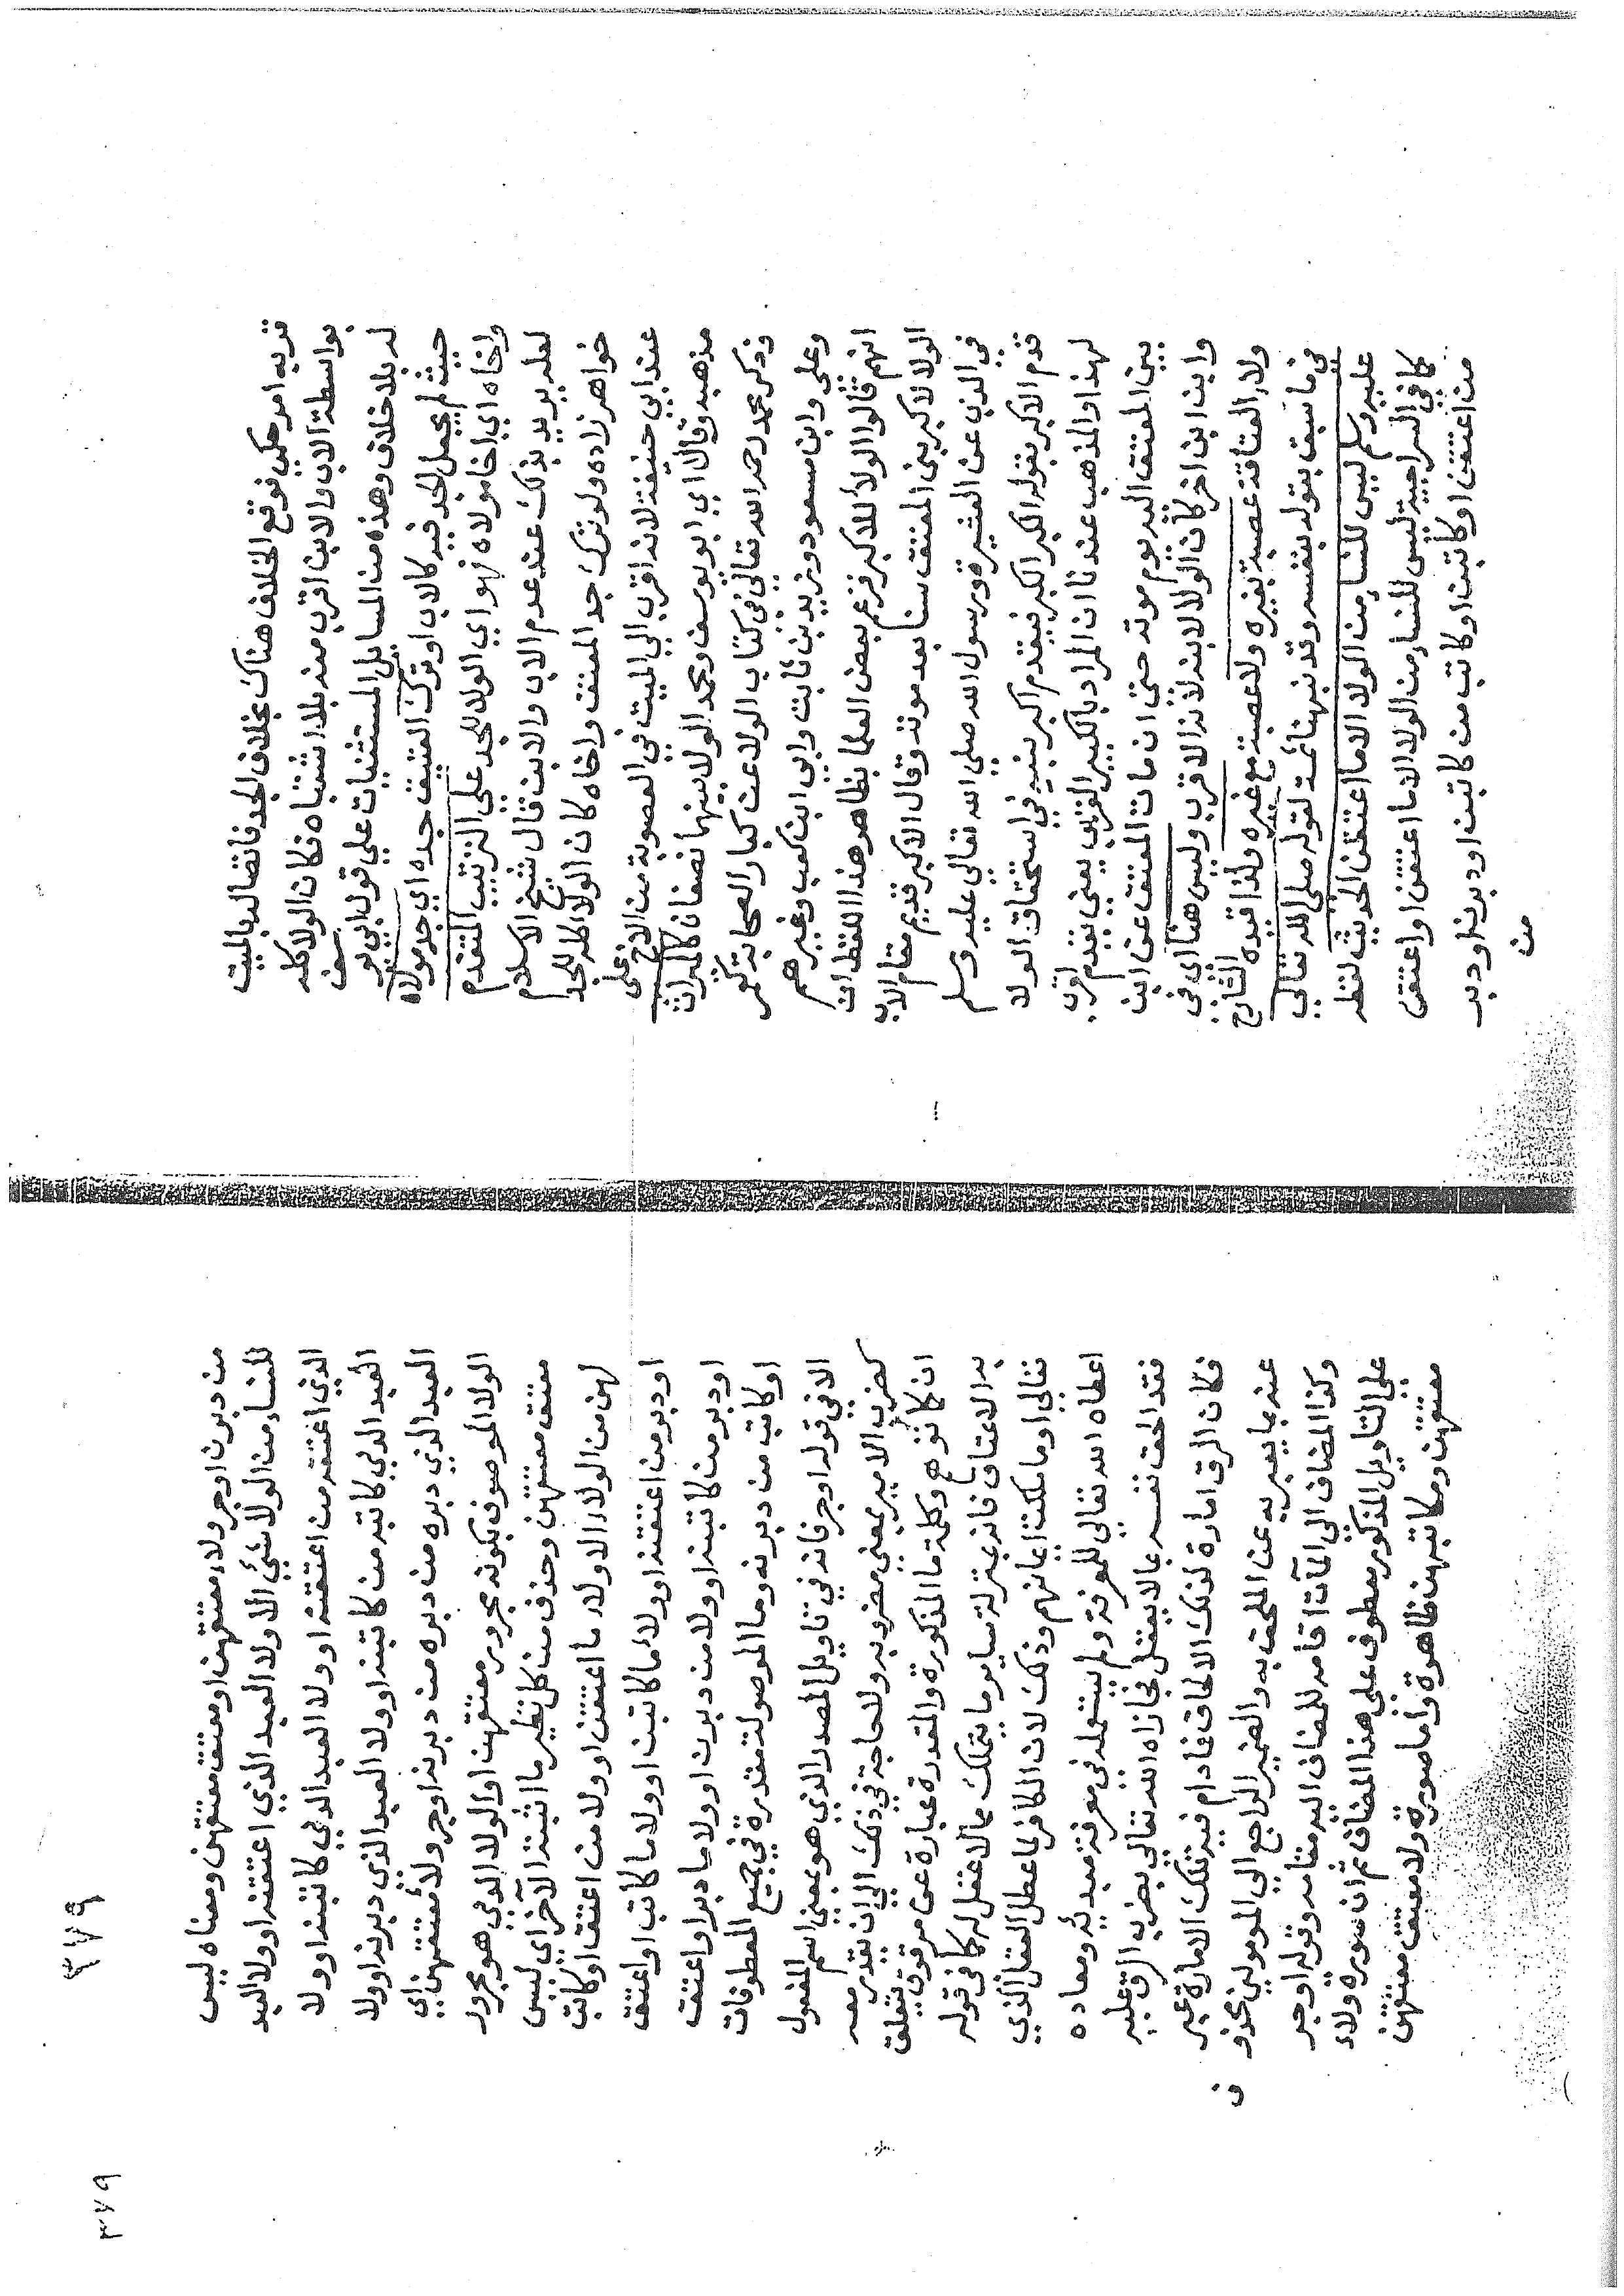 قريه امر حكمي فوقع الخلاف هناك بخلاف الجد فاتصاله بالميت
بواسطة الاب والابن اقرب منه بلا اشتباه فكان الولا كله
له بلا خلاف وهذه من المسايل المستثنيات علي قول ابي يوسف
حيث لم يجعل الجد فيه كالاب او ترك العتيق جده اي جد مولاه
واخاه اي اخا مولاه فهو اي الولا للجد علي الترتيب المتقدم
لعله يريد بذلك عند عدم الاب والابن قال شيخ الاسلام
خواهر زاده ولو ترك جد المعتق واخاه كان الولا كله للجد
عند ابي حنيفة لانه اقرب الي الميت في العصوبة من الاخ علي
مذهبه وقالا اي ابو يوسف ومحمد الولا بينهما نصفان كالميراث
وذكر محمد رحمه الله تعالي في كتاب الولا عن كبار الصحابة كعمر
وعلي وابن مسعود وزيد بن ثابت وابي ابن كعب وغيرهم
انهم قالوا الولا للاكبر فزعم بعض العلما بظاهر هذا اللفظ ان
الولا لاكبر بني المعتق سنا بعد موته وقال الاكبر قديم مقام الاب
في الذب عن العشيرة ورسول الله صلي الله تعالي عليه وسلم
قدم الاكبر بقوله الكبر الكبر فيقدم اكبر بنيه في استحقاق الولا
لهذا والمذهب عندنا ان المراد بالكبير القرب يعني يقدم اقرب
بني المعتق اليه يوم موته حتي ان مات المعتق عن ابن
وابن ابن اخر كان الولا لابنه لانه الاقرب وليس هنا اي في
ولاء العتاقة عصبة بغيره ولا عصبة مع غيره ولذا قيده الشارح
في ما سبق بقوله بنفسه وقد نبهنا ثمة لقوله صلي الله تعالي
عليه وسلم ليس للنساء من الولا الا ما اعتقن الحديث لفظه
كما في السراجية ليس للنساء من الولا الا ما اعتقن او اعتق
من اعتقن او كاتبن او كاتب من كاتبن او دبرن او دبر
من
٣٧٩
٣٧٩
من دبرن او جر ولاء معتقهن او معتق معتقهن ومعناه ليس
للنساء من الولا شئ الا ولا العبد الذي اعتقنه او ولا العبد
الذي اعتقه من اعتقنه او ولا العبد الذي كاتبنه او ولا
العبد الذي كاتبه من كاتبنه او ولا العبد الذي دبرنه او ولا
العبد الذي دبره من دبرنه او جر ولاء معتقهن اي
الولا الموصوف بكونه مجرور معتقهن او الولا الذي هو مجرور
معتق معتقهن وحذف من كل نظير ما اثبته الاخر اي ليس
لهن من الولاء الا ولاء ما اعتقن او ولا من اعتق او كاتب
او دبر من اعتقنه او ولا ما كاتبن او ولا ما كاتب او اعتق
او دبر من كاتبنه او ولا من دبرن او ولا ما دبر او اعتق
او كاتب من دبرنه وما الموصولة مقدرة في جميع المعطوفات
الا في قوله او جر فانه في تاويل المصدر الذي هو بمعني اسم المفعول
كضرب الامير بمعني مضروبه ولا حاجة في ذلك الي ان تقدير معه
ان كما توهم وكلمة ما المذكورة والمقدرة عبارة عن مرقوق يتعلق
به الاعتاق فانه بمنزلة ساير ما يتملك مما لا عقل له كما في قوله
تعالي او ما ملكت ايمانهم وذلك لان الكافر لما عطل العقل الذي
اعطاه الله تعالي للمعرفة ولم يستعمله في معرفة مبدئه ومعاده
فقد الحق نفسه بما لا يعقل فجازاه الله تعالي بضرب الرق عليه
فكان الرق امارة لذلك الالحاق فما دام فيه تلك الامارة عبر
عنه بما يعبر به عن الملحق به والضمير الراجع الي الموصول محذوف
وكذا المضاف الي ما آتا اقامه للمضاف اليه مقامه وقوله او جر
علي التاويل المذكور معطوف علي هذا المضاف ثم ان صورة ولاء
معتقهن ومكاتبهن ظاهرة واما صورة ولا معتق معتقهن